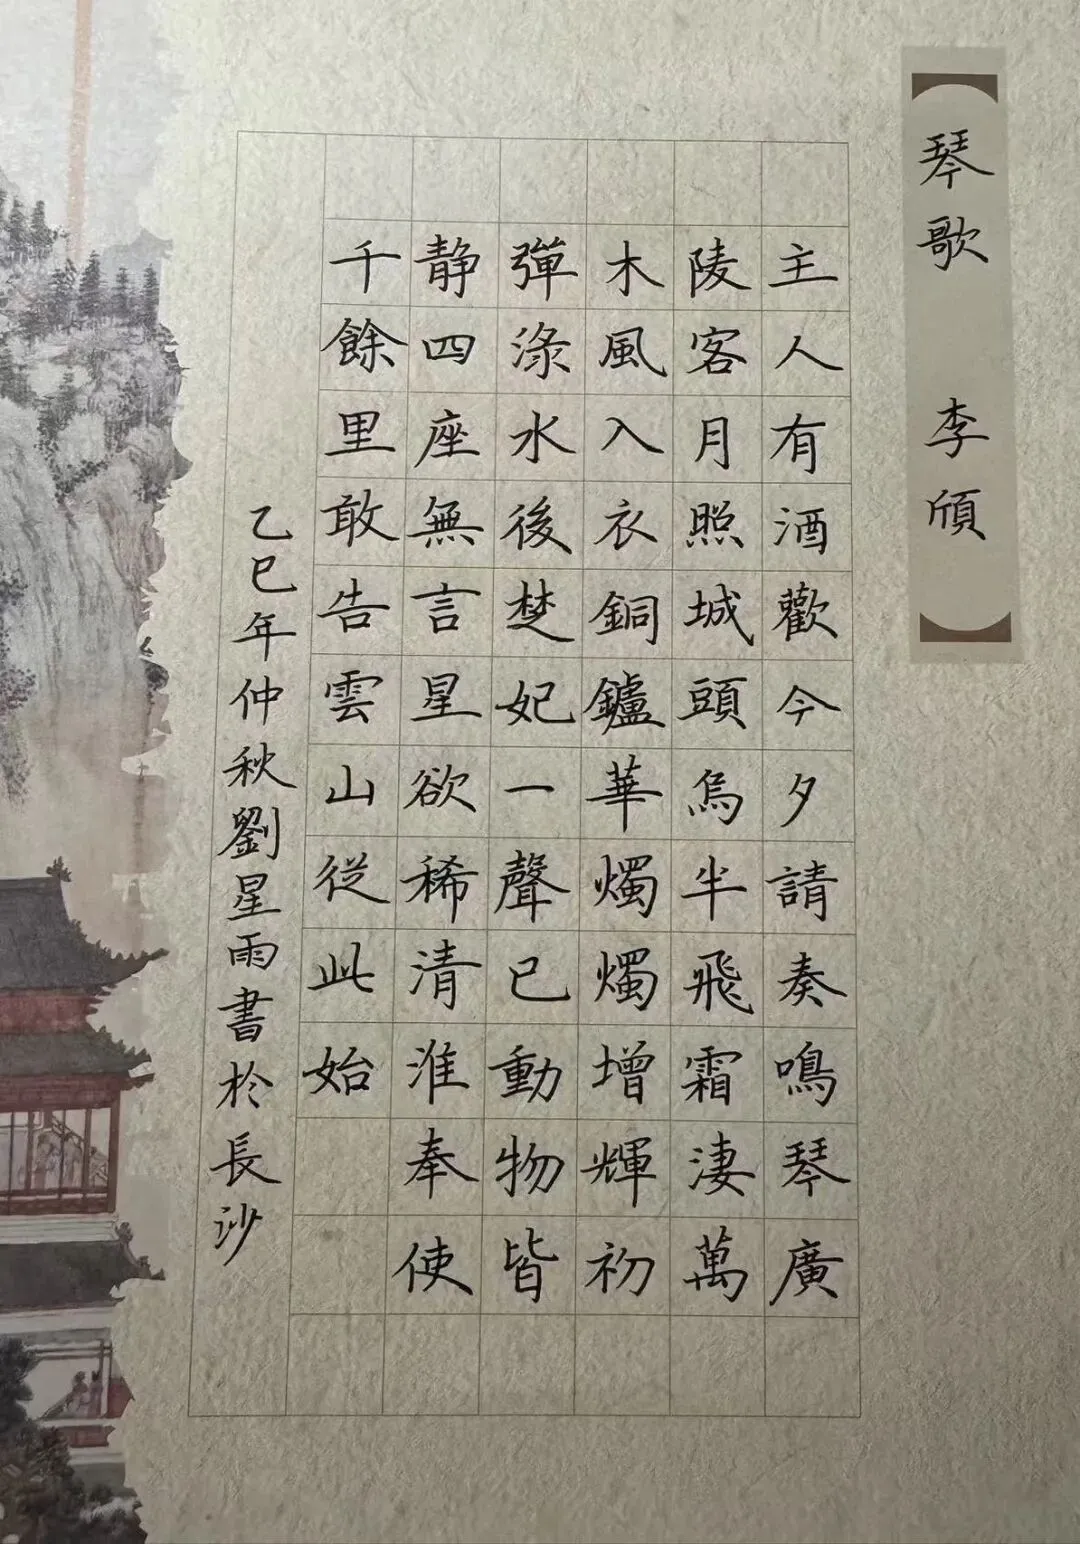 琴歌 李頎
主人有酒歡今夕請奏鳴琴廣
陵客月照城頭烏半飛霜淒萬
木風入衣銅鑪華燭燭增輝初
彈淥水後楚妃一聲已動物皆
静四座無言星欲稀清淮奉使
千餘里敢告雲山從此始
乙巳年仲秋劉星雨書於長沙